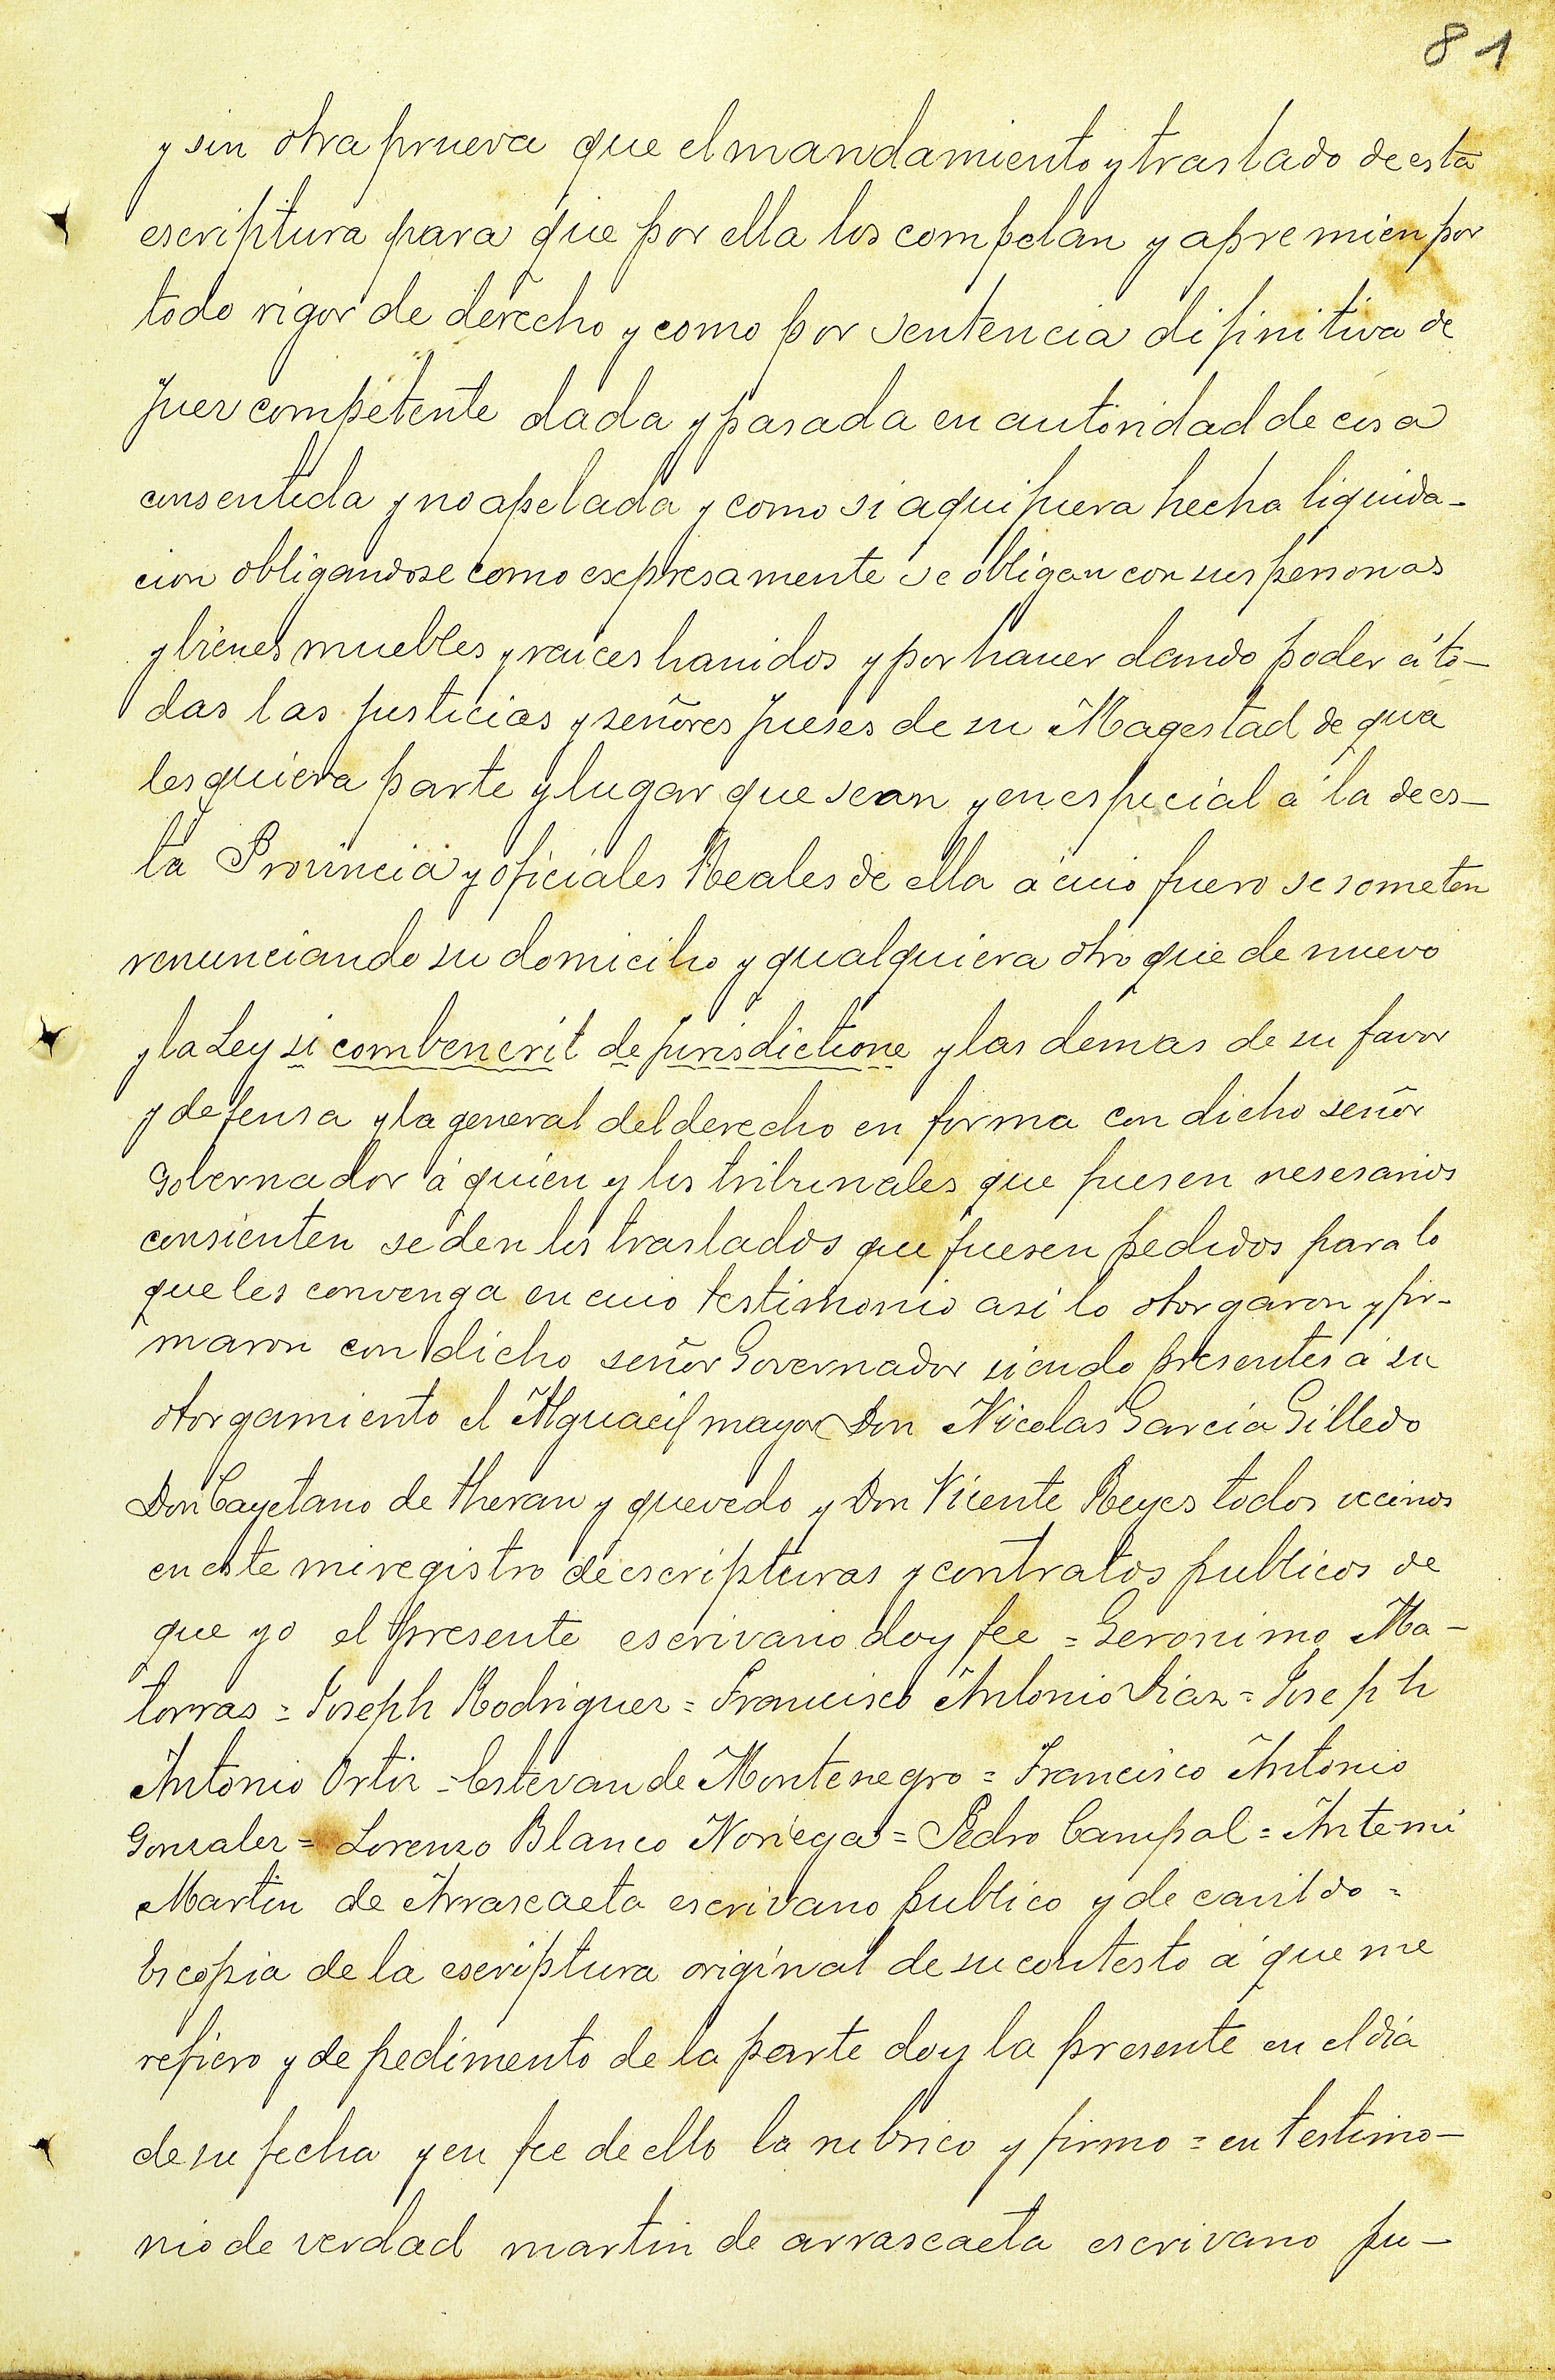 81
y sin otra prueva que el mandamiento y traslado de esta
escriptura para que por ella los compelan y apremien por
todo rigor de derecho y como por sentencia difinitiva de
Juez competente dada y pasada en autoridad de cosa
consentida y no apelada y como si aqui fuera hecha liquida-
cion obligandose como expresamente se obligan con sus personas
y bienes muebles y raices havidos y por haver dando poder á to-
das las justicias y señores Jueses de su Magestad de qua
lesquiera parte y lugar que sean y en especial á la de es-
ta Provincia y oficiales Reales de ella á cuio fuero se someten
renunciando su domicilio y qualquiera otro que de nuevo
y la Ley si combenerit de jurisdictione y las demas de su favor
y defensa y la general del derecho en forma con dicho señor
Gobernador á quien y los tribunales que fuesen nesesarios
consienten se den los traslados que fuesen pedidos para lo
que les convenga en cuio testimonio asi lo otorgaron y fir-
maron con dicho señor Governador siendo presentes á su
otorgamiento el Alguacil mayor Don Nicolas Garcia Gilledo
Don Cayetano de theran y quevedo y Don Vicente Reyes todos vecinos
en este mi registro de escripturas y contratos publicos de
que yo el presente escrivano doy fee = Geronimo Ma-
torras = Joseph Rodriguez = Francisco Antonio Diaz = Joseph
Antonio Ortiz = Estevan de Montenegro = Francisco Antonio
Gonzalez = Lorenzo Blanco Noriega = Pedro Campal = Ante mi
Martin de Arrascaeta escrivano publico y de cavildo =
Es copia de la escriptura original de su contesto á que me
refiero y de pedimento de la parte doy la presente en el dia
de su fecha y en fee de ello la rubrico y firmo = en testimo-
nio de verdad martin de arrascaeta escrivano pu-